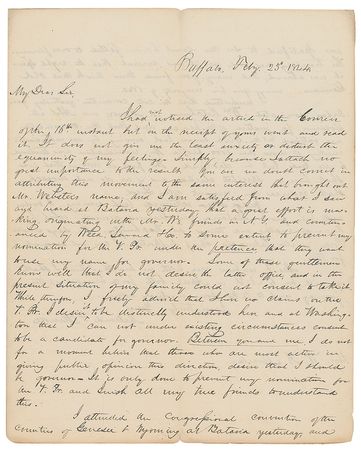 Buffalo, Feby. 25th 1844.
My Dear Sir,
I had not noticed the article in the Courier
of the 16th instant but on the receipt of yours went and read
it. It does not give me the least anxiety or disturb the
equanimity of my feelings. Simply because I attach no
great importance to the result. You are no doubt correct in
attributing this movement to the same interest that brought out
Mr. Webster's name, and I am satisfied from what I saw
and heard at Batavia yesterday that a great effort is
making originating with Mr. W's friends in N.Y. and
by Weed, & Co. to some extent to prevent my
nomination for the V. P. under the pretence that they want
to use my name for governor. Some of these gentlemen
know well that I do not desire the latter office, and in the
present situation of my family could not consent to take it.
While therefore, I freely admit that I have no claims on the
V. P. I desire to be distinctly understood here and at Washing-
ton that I can not under existing circumstances consent
to be a candidate for governor. Between you and me I do not
for a moment believe that those who are most active in
giving public opinion this direction, desire that I should
be governor. It is only done to prevent my nomination for
the V. P. and I wish all my true friends to understand
this.
I attended the Congressional convention of the
counties of Genesee & Wyoming at Batavia yesterday, and